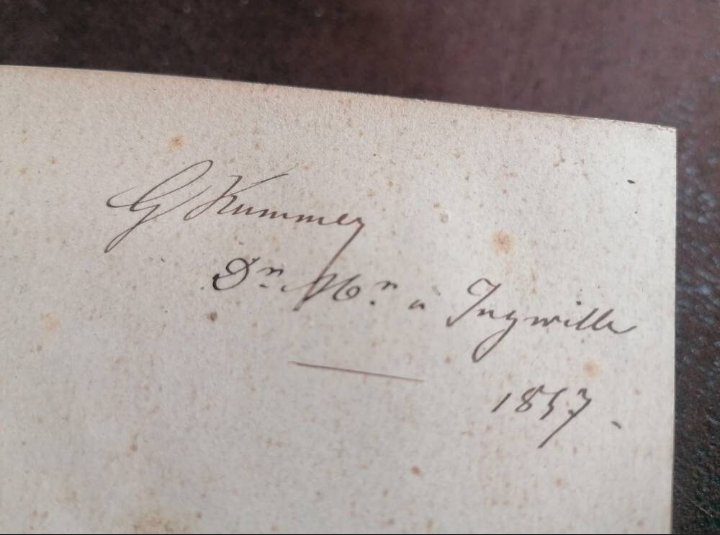 G Kummer
Dr. Mn. à Ingwille
1857.